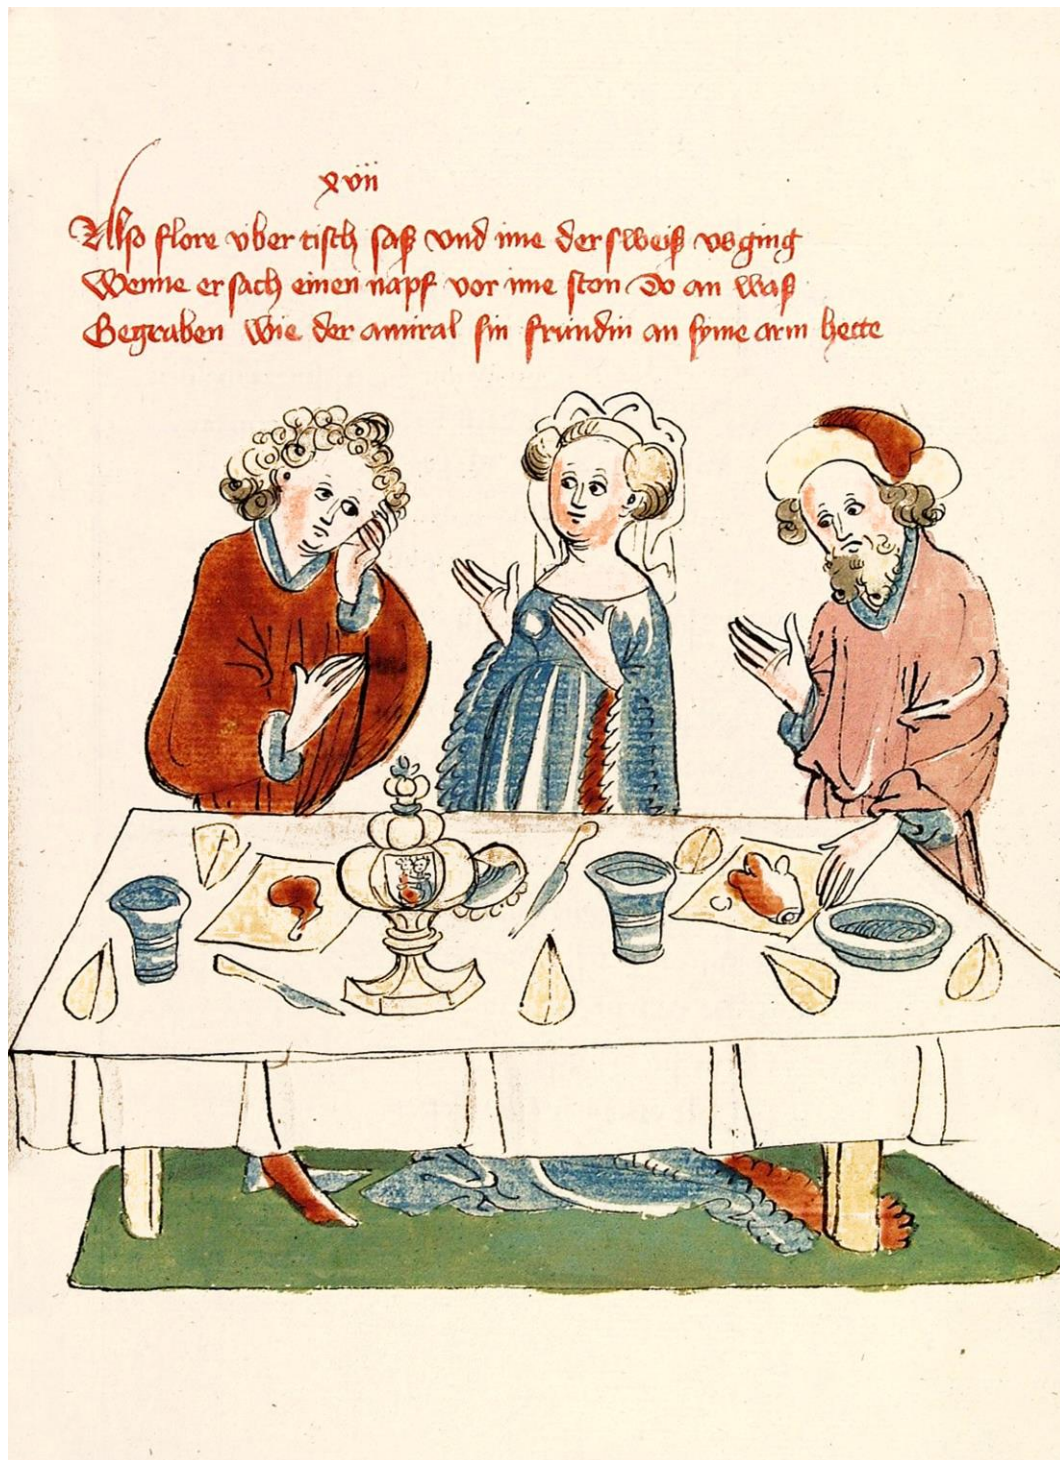 xvii
Also flore vber tisch saß vnd ime der sweiß vsging
Wenne er sach einen napf vor ime ston Do an waß
Gegraben wie der amiral sin frundin an syme arm hette